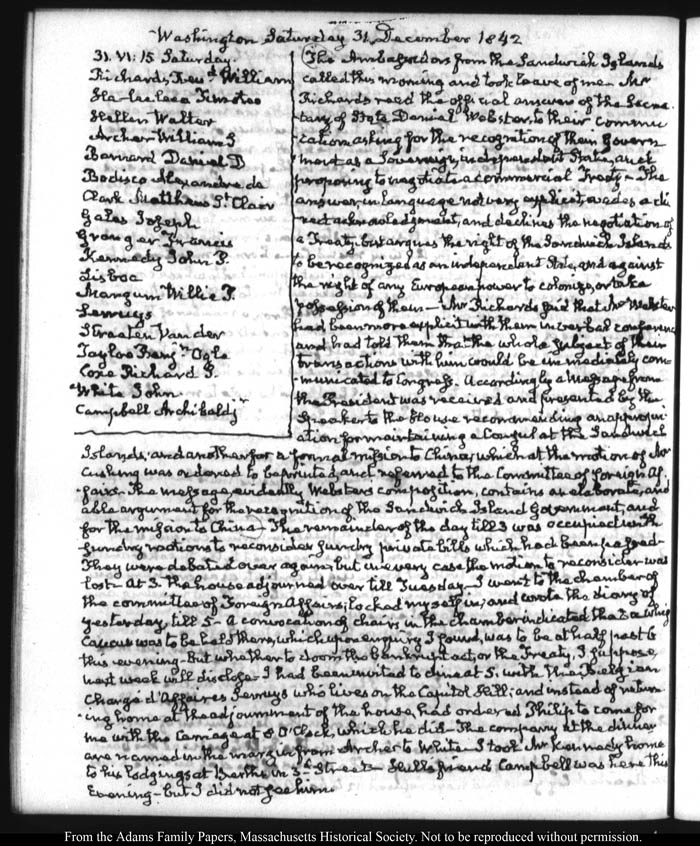 Washington Saturday 31. December 1842
31. VI:15 Saturday.
Richards, Revd. William
Ha-alelea Timoteo
Hellen Walter
Archer William S
Barnard Daniel D
Bodisco Alexandre de
Clark Matthew St Clair
Gales Joseph
Granger Francis
Kennedy John P.
Lisboa
Mangum Willie P.
Serruys
Straeten Van der
Tayloe Benj.n Ogle
Coxe Richard S.
White John
Campbell Archibald jr
The Ambassadors from the Sandwich Islands
called this morning and took leave of me. Mr
Richards read the official answer of the Secre-
tary of State Daniel Webster, to their commu-
cation asking for the recognition of their Govern-
ment as a Sovereign, independent State, and
proposing to negotiate a Commercial Treaty. The
answer, in language not very explicit, evades a di-
rect acknowledgment, and declines the negotiation of
a Treaty. but argues the right of the Sandwich Islands
to be recognized as an independent State, and against
the right of any European power to colonize, or take
possession of them— Mr Richards said that Mr Webster
had been more explicit with them in verbal conference
and had told them that the whole subject of their
transactions with him would be immediately com-
municated to Congress. Accordingly a Message from
the President was received and presented by the
Speaker to the House recommending an appropri-
ation for maintaining a Consul at the Sandwich
Islands; and another for a formal mission to China, which at the motion of Mr
Cushing was ordered to be printed, and referred to the Committee of foreign Af-
fairs. The message, evidently Websters composition, contains an elaborate, and
able argument for the recognition of the Sandwich Island Government, and
for the mission to China— The remainder of the day till 3 was occupied with
sundry motions to reconsider sundry private bills which had been passed—
They were debated over again; but in every case the motion to reconsider was
lost— At 3. the house adjourned over till Tuesday— I went to the chamber of
the committee of Foreign Affairs; locked myself in; and wrote the diary of
yesterday, till 5— A convocation of chairs, in the chamber indicated that a whig
Caucus was to be held there, which upon enquiry I found, was to be at half past 6
this evening— But whether to doom the bankrupt act, or the Treaty, I suppose,
next week will disclose. I had been invited to dine at 5. with the Belgian
Chargé d'Affaires Serruys who lives on the Capitol Hill; and instead of return-
ing home at the adjournment of the house, had ordered Philip to come for
me with the Carriage at 8 O'Clock, which he did. The company at the dinner
are named in the margin from Archer to White— I took Mr Kennedy home
to his lodgings at Berths in 3d. Street— Hulls friend Campbell was here this
Evening— but I did not see him.
From the Adams Family Papers, Massachusetts Historical Society. Not to be reproduced without permission.